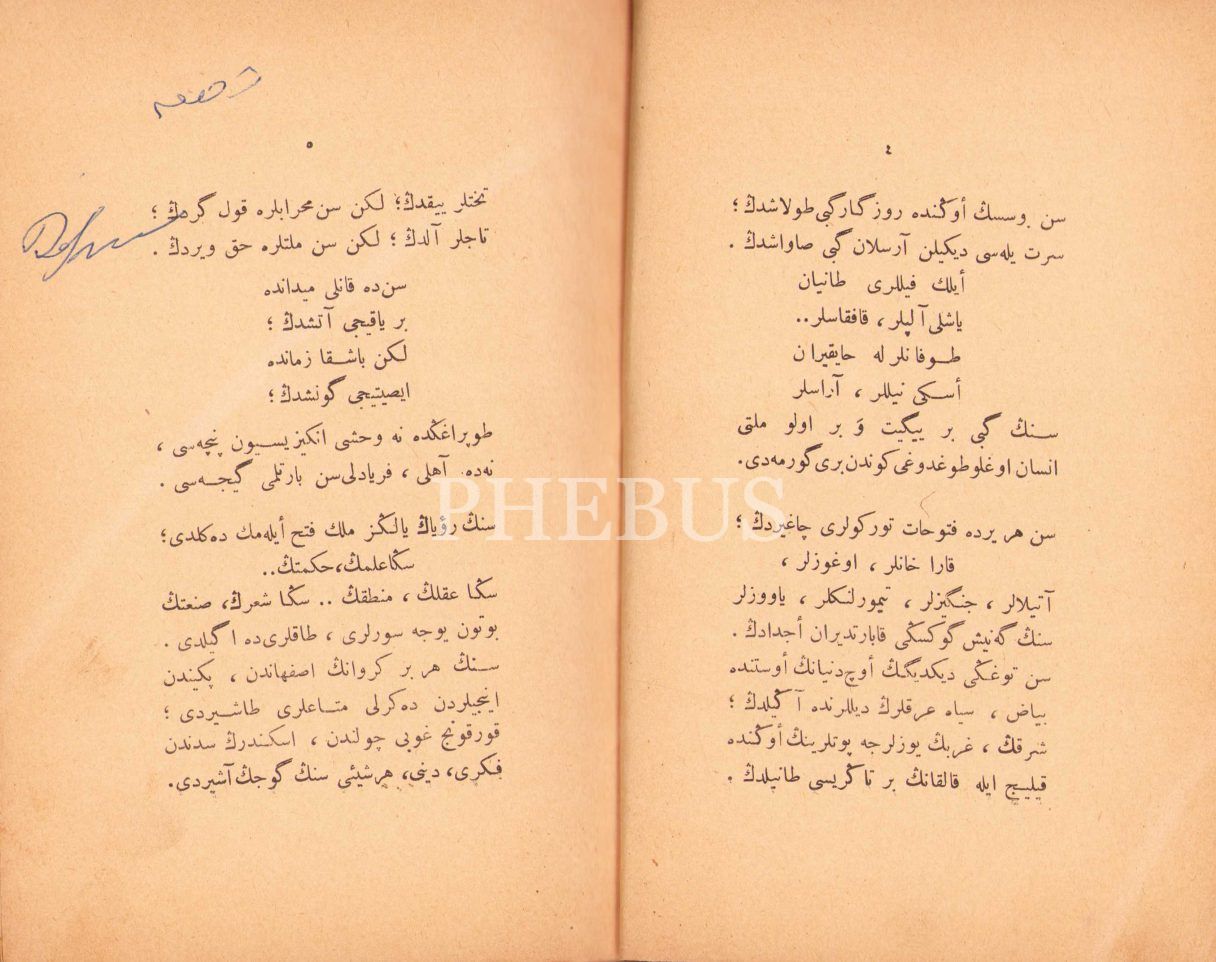 ٤
سن بوسسڭ أوڭنده روزگار گبی طولاشدڭ؛
سرت یله‌سی دیكیلن آرسلان گبی صاواشدڭ .
أیلك فیللری طانیان
یاشلی آلپلر ، قافقاسلر..
طوفانلر له حایقیران
أسكی نیللر ، آراسلر
سنڭ گبی بر ییگیت وَ بر اولو ملتی
انسان اوغلو طوغدوغی كوندن بری گورمه‌دی.
سن هر یرده فتوحات توركولری چاغیردڭ ؛
قارا خانلر ، اوغوزلر ،
آتیلالر ، جنگیزلر ، تیمورلنكلر ، یاووزلر
سنڭ گه‌نیش گوكسڭی قابارتدیران أجدادڭ .
سن توغڭی دیكدیگڭ أوچ دنیانڭ أوستنده
بیاض ، سیاه عرقلرڭ دیللرنده آڭیلدڭ ؛
شرقڭ ، غربڭ یوزلرجه پوتلرینڭ أوڭنده
قیلیچ ایله قالقانڭ بر تاڭریسی طانیلدڭ .
٥
تختلر ییقدڭ؛ لكن سن محرابلره قول گردڭ ؛
تاجلر آلدڭ ؛ لكن سن ملتلره حق ویردڭ .
سن‌ده قانلی میدانده
بر یاقیجی آتشدڭ ؛
لكن باشقا زمانده
ایصیتیجی گونشدڭ ؛
طوپراغڭده نه وحشی انكیزیسیون پنچه‌سی ،
نه‌ده آهلی ، فریادلی سن بارتلمی گیجه‌سی .
سنڭ رؤیاڭ یالڭز ملك فتح أیله‌مك ده‌كلدی؛
سڭا علمڭ، حكمتڭ..
سڭا عقلڭ ، منطقڭ .. سڭا شعرڭ، صنعتڭ
بوتون یوجه سورلری ، طاقلری‌ده ا گیلدی .
سنڭ هر بر كروانڭ اصفهاندن ، پكیندن
اینجیلردن ده‌كرلی متاعلری طاشیردی ؛
قورقونج غوبی چولندن ، اسكندرڭ سدندن
فكری، دینی، هرشیئی سنڭ گوجڭ آشیردی.
PHEBUS